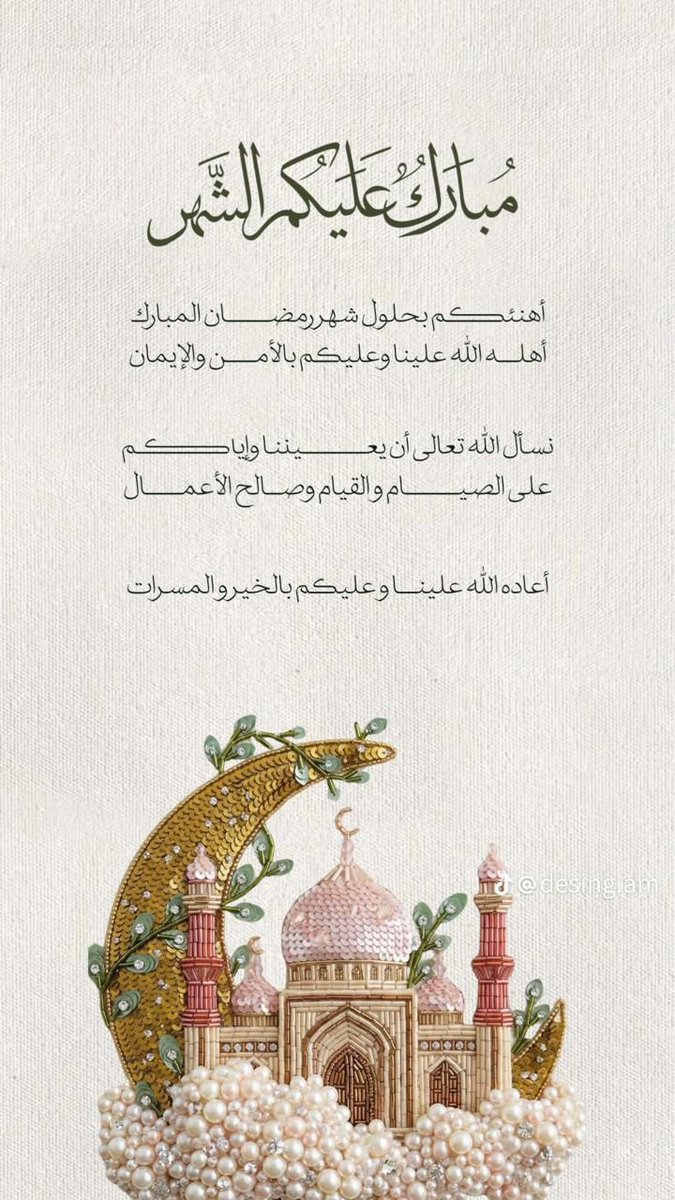 مُبَارَكٌ عَلَيْكُم الشَّهر
أهنئكم بحلول شهر رمضان المبارك
أهله الله علينا وعليكم بالأمن والإيمان
نسأل الله تعالى أن يعيننا وإياكم
على الصيام والقيام وصالح الأعمال
أعاده الله علينا وعليكم بالخير والمسرات
@desing.am